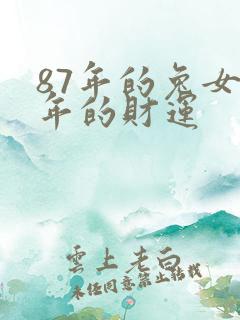 87年的兔女
年的財運
雲上老白
未经同意禁止搭载